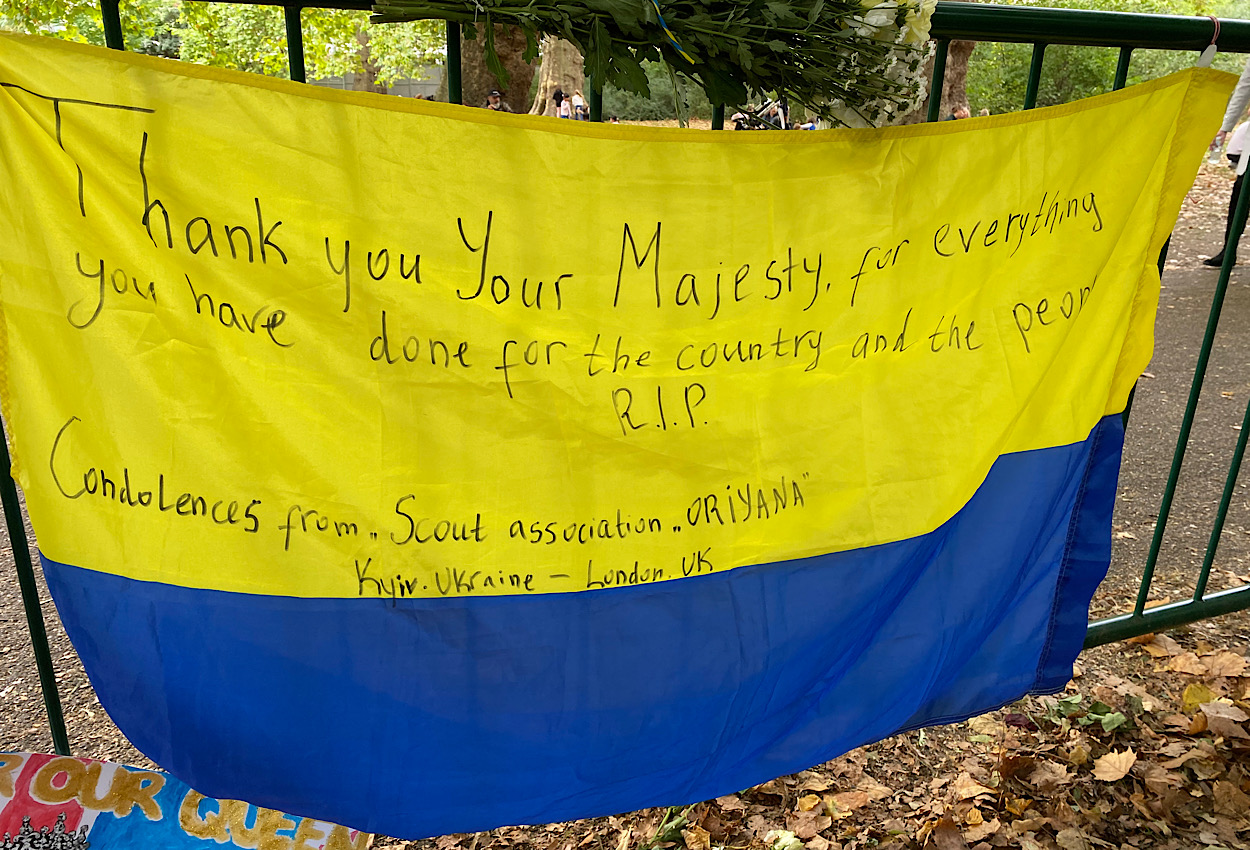 Thank you Your Majesty, for everything
you have done for the country and the
R.I.P.
Condolences from „Scout association „ORiYANA"
Kyiv. Ukraine – London. UK
OUR QUEEN